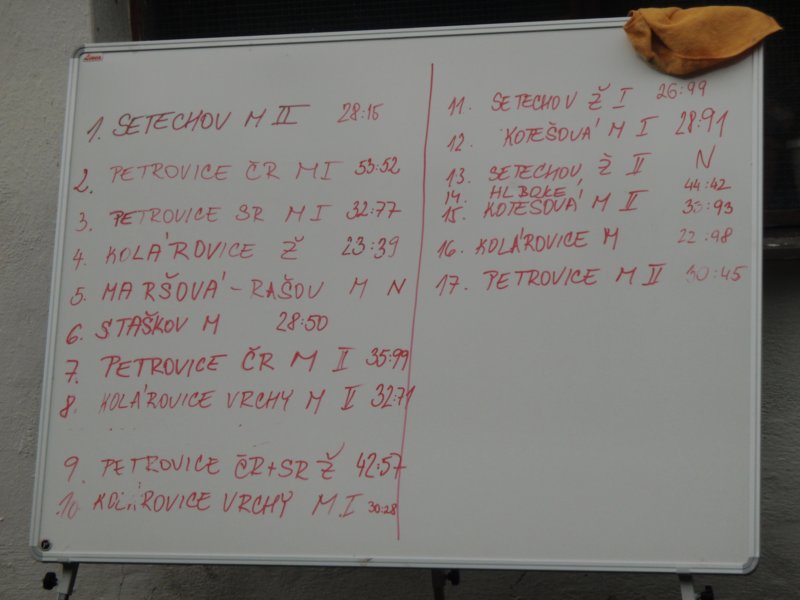 1. SETECHOV M II 28:15
2. PETROVICE ČR M I 53:52
3. PETROVICE SR M I 32:77
4. KOLÁROVICE Ž 23:39
5. MARŠOVÁ-RAŠOV M N
6. STAŠKOV M 28:50
7. PETROVICE ČR M II 35:99
8. KOLÁROVICE VRCHY M II 32:71
9. PETROVICE ČR+SR Ž 42:57
10. KOLÁROVICE VRCHY M I 30:28
11. SETECHOV Ž I 26:99
12. KOTEŠOVÁ M I 28:91
13. SETECHOV Ž II N
14. HLBOKÉ 44:42
15. KOTEŠOVÁ M II 33:93
16. KOLÁROVICE M 22:98
17. PETROVICE M II 30:45